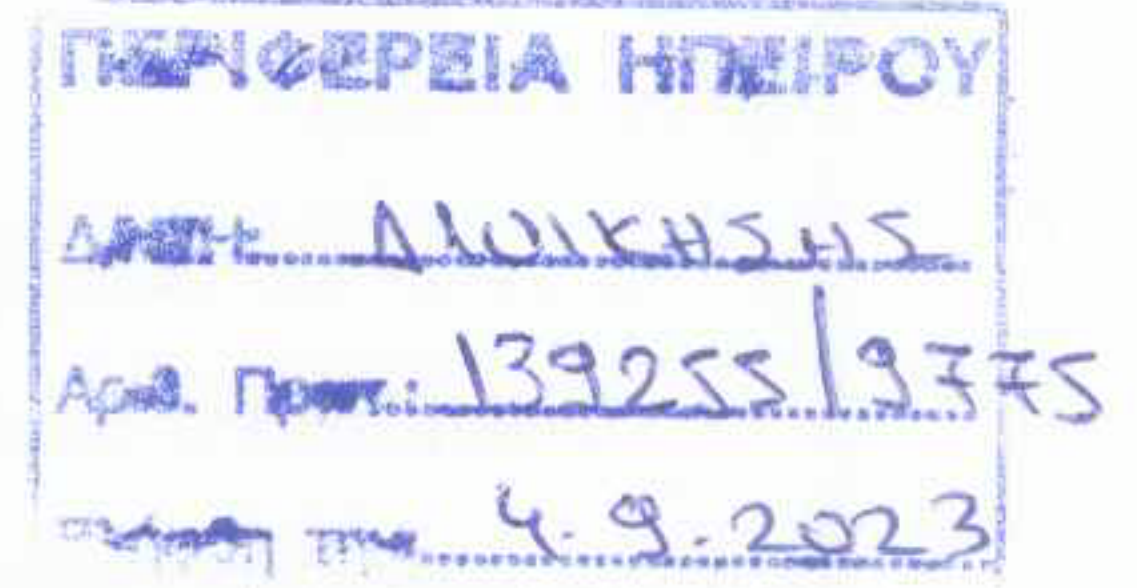 ΠΕΡΙΦΕΡΕΙΑ ΗΠΕΙΡΟΥ
Δ/ΝΣΗ ΔΙΟΙΚΗΣΗΣ
Αριθ. Πρωτ.: 139255/9775
4.9.2023